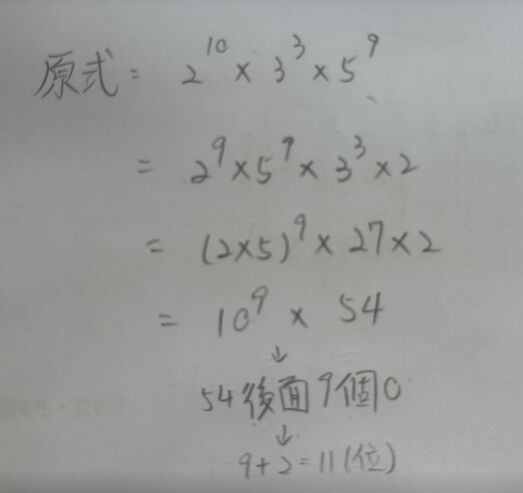 原式 = 2^10 × 3^3 × 5^9
= 2^9 × 5^9 × 3^3 × 2
= (2×5)^9 × 27 × 2
= 10^9 × 54
↓
54後面9個0
↓
9+2=11(位)